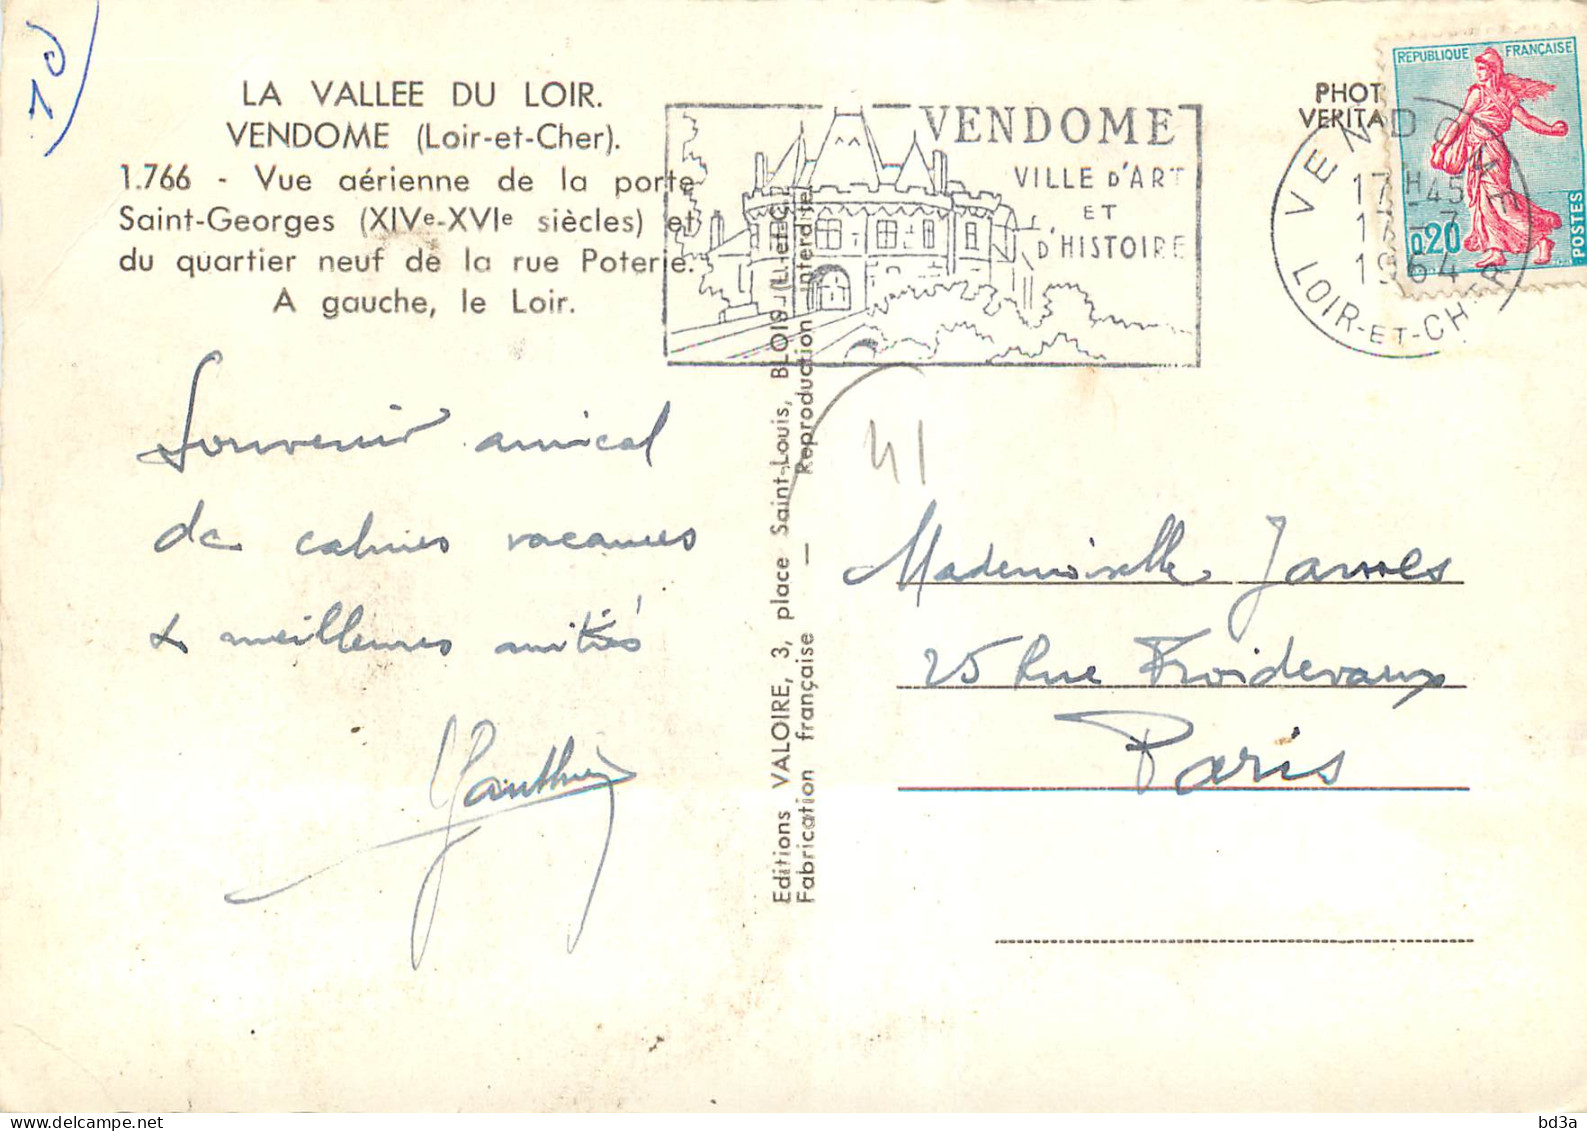 10
LA VALLEE DU LOIR.
VENDOME (Loir-et-Cher).
1.766 - Vue aérienne de la porte
Saint-Georges (XIVe-XVIe siècles) et
du quartier neuf de la rue Poterie.
A gauche, le Loir.
VENDOME
VILLE D'ART
ET
D'HISTOIRE
PHOT
VERITA
VENDOME
17H45
17-7
1964
LOIR-ET-CHER
REPUBLIQUE FRANÇAISE
0,20
POSTES
Souvenir amical
de calmes vacances
& meilleures amitiés
Gauthier
Editions VALOIRE, 3, place Saint-Louis, BLOIS (L.-et-C.)
Fabrication française — Reproduction interdite
41
Mademoiselle James
25 Rue Froidevaux
Paris
bd3a